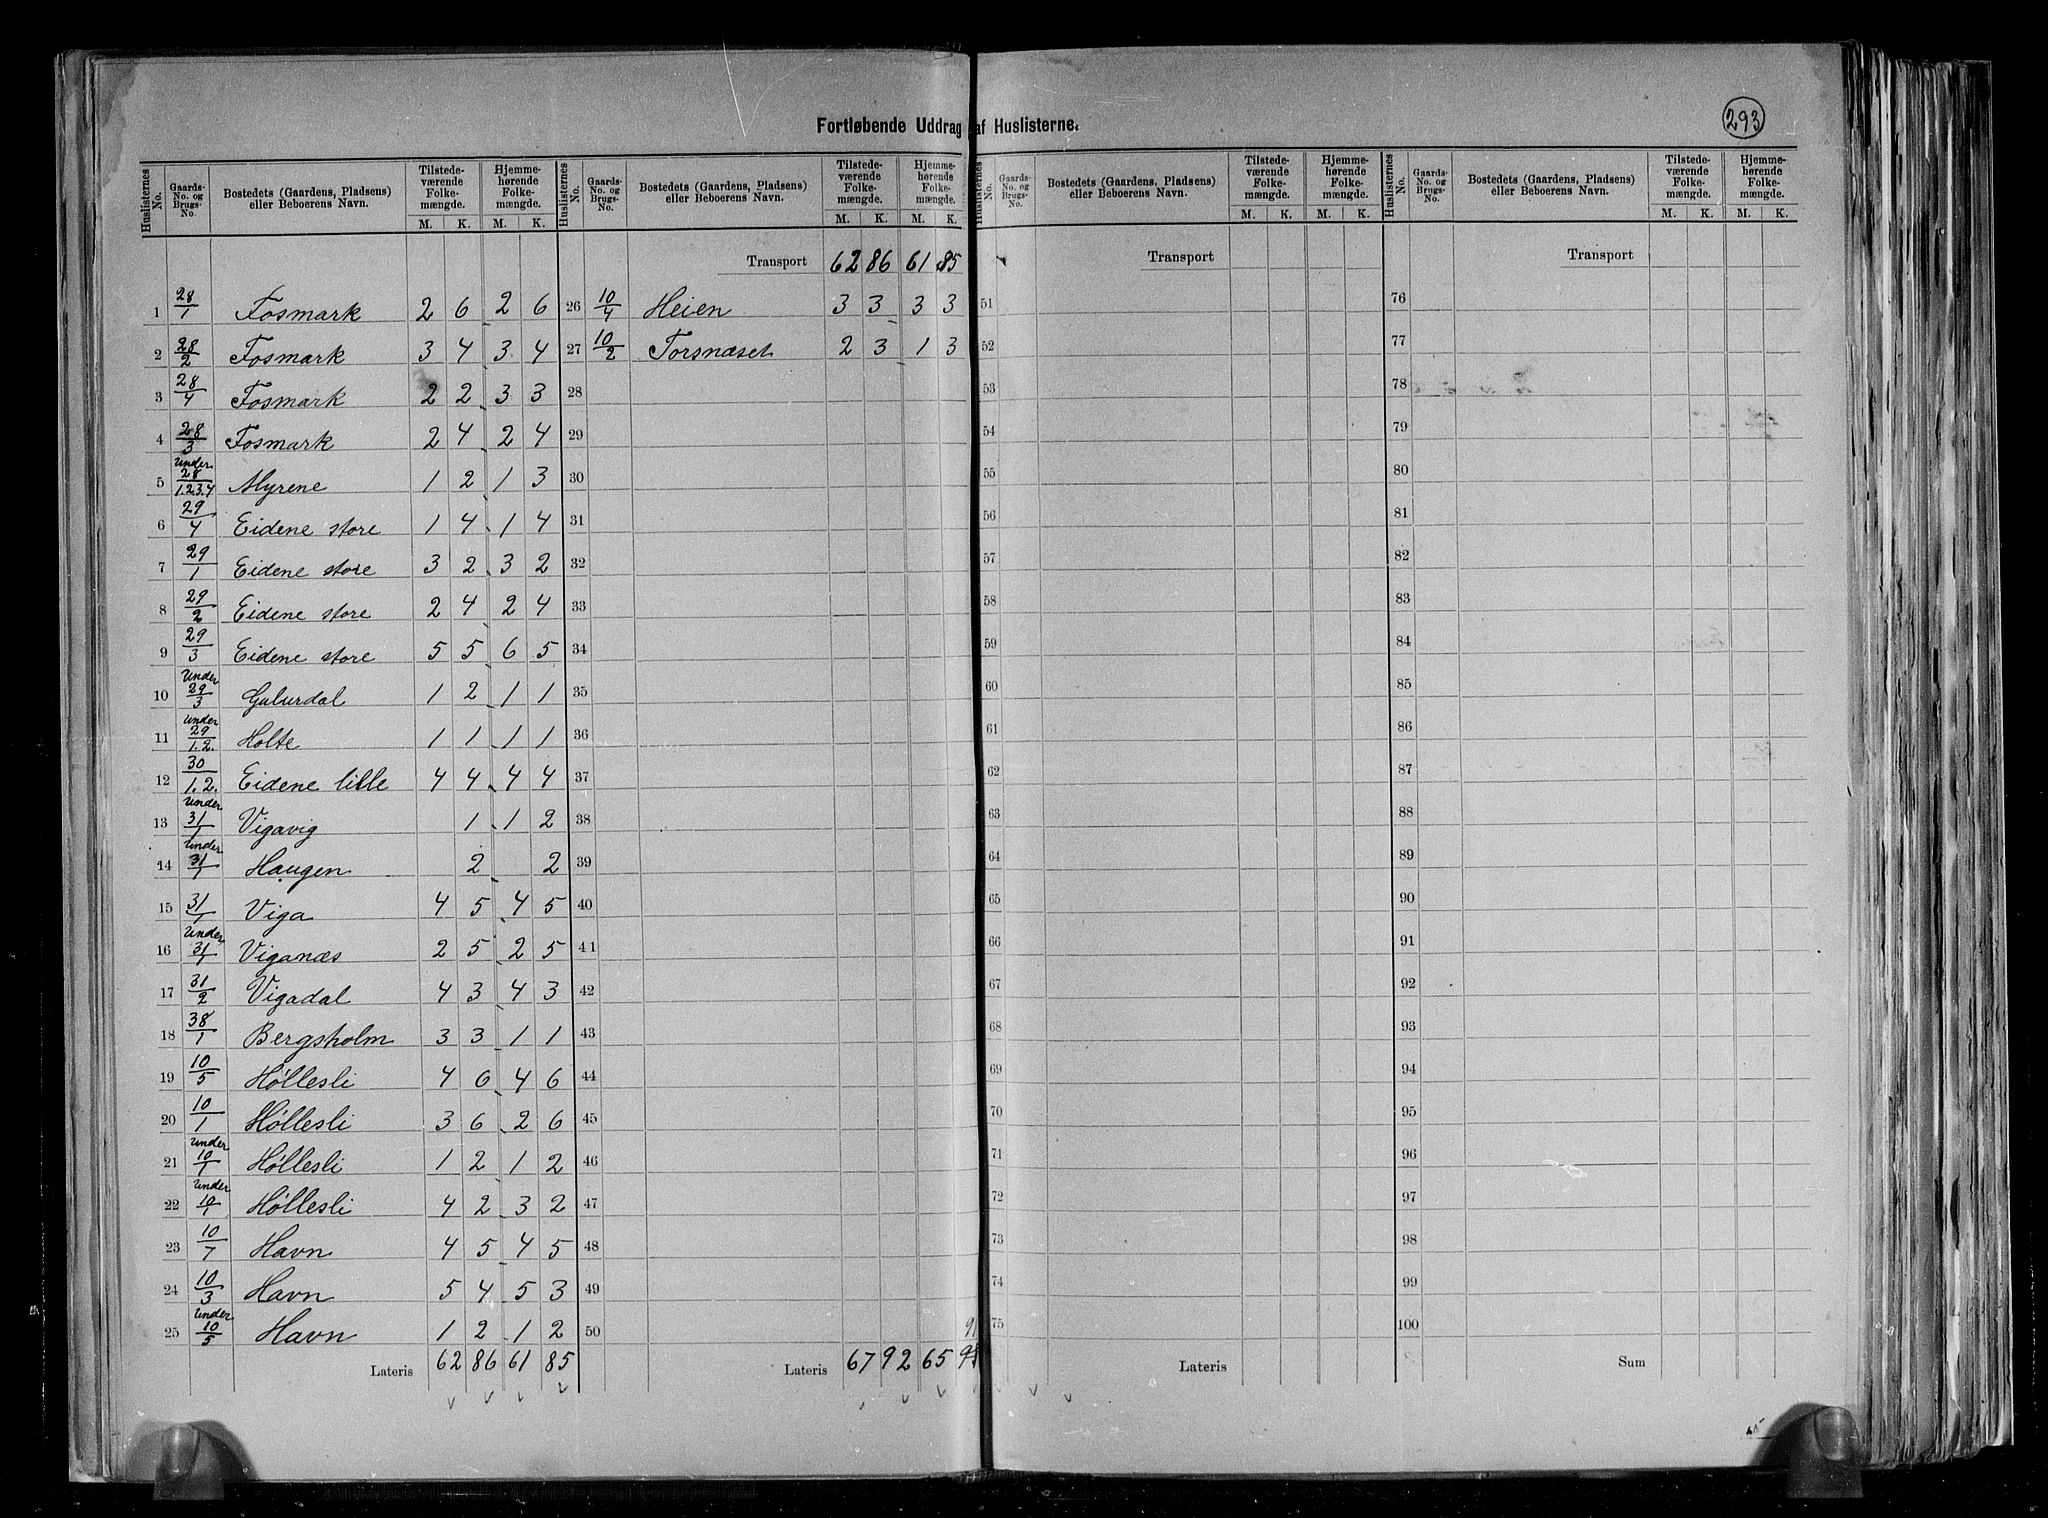 293
Fortløbende Uddrag af Huslisterne.
Huslisternes No. Gaards-No. og Brugs-No. Bostedets (Gaardens, Pladsens) eller Beboerens Navn. Tilstedeværende Folkemængde. M. K. Hjemmehørende Folkemængde. M. K.
Huslisternes No. Gaards-No. og Brugs-No. Bostedets (Gaardens, Pladsens) eller Beboerens Navn. Tilstedeværende Folkemængde. M. K. Hjemmehørende Folkemængde. M. K.
Huslisternes No. Gaards-No. og Brugs-No. Bostedets (Gaardens, Pladsens) eller Beboerens Navn. Tilstedeværende Folkemængde. M. K. Hjemmehørende Folkemængde. M. K.
Huslisternes No. Gaards-No. og Brugs-No. Bostedets (Gaardens, Pladsens) eller Beboerens Navn. Tilstedeværende Folkemængde. M. K. Hjemmehørende Folkemængde. M. K.
Transport 62 86 61 85 Transport Transport
1 28/1 Fosmark 2 6 2 6 26 10/4 Heien 3 3 3 3 51 76
2 28/2 Fosmark 3 4 3 4 27 10/2 Torsnæset 2 3 1 3 52 77
3 28/4 Fosmark 2 2 3 3 28 53 78
4 28/3 Fosmark 2 4 2 4 29 54 79
5 Under 28/1.2.3.4 Myrene 1 2 1 3 30 55 80
6 29/4 Eidene store 1 4 1 4 31 56 81
7 29/1 Eidene store 3 2 3 2 32 57 82
8 29/2 Eidene store 2 4 2 4 33 58 83
9 29/3 Eidene store 5 5 6 5 34 59 84
10 Under 29/3 1 2 1 1 35 60 85
11 Under 29/1.2. Holte 1 1 1 1 36 61 86
12 30/1.2. Eidene lille 4 4 4 4 37 62 87
13 Under 31/1 Vigavig 1 1 2 38 63 88
14 Under 31/1 Haugen 2 2 39 64 89
15 31/1 Viga 4 5 4 5 40 65 90
16 Under 31/1 Viganæs 2 5 2 5 41 66 91
17 31/2 Vigadal 4 3 4 3 42 67 92
18 38/1 Bergsholm 3 3 1 1 43 68 93
19 10/5 Høllesli 4 6 4 6 44 69 94
20 10/1 Høllesli 3 6 2 6 45 70 95
21 Under 10/1 Høllesli 1 2 1 2 46 71 96
22 Under 10/1 Høllesli 4 2 3 2 47 72 97
23 10/7 Havn 4 5 4 5 48 73 98
24 10/3 Havn 5 4 5 3 49 74 99
25 Under 10/5 Havn 1 2 1 2 50 75 100
Lateris 62 86 61 85 Lateris 67 92 65 Lateris Sum